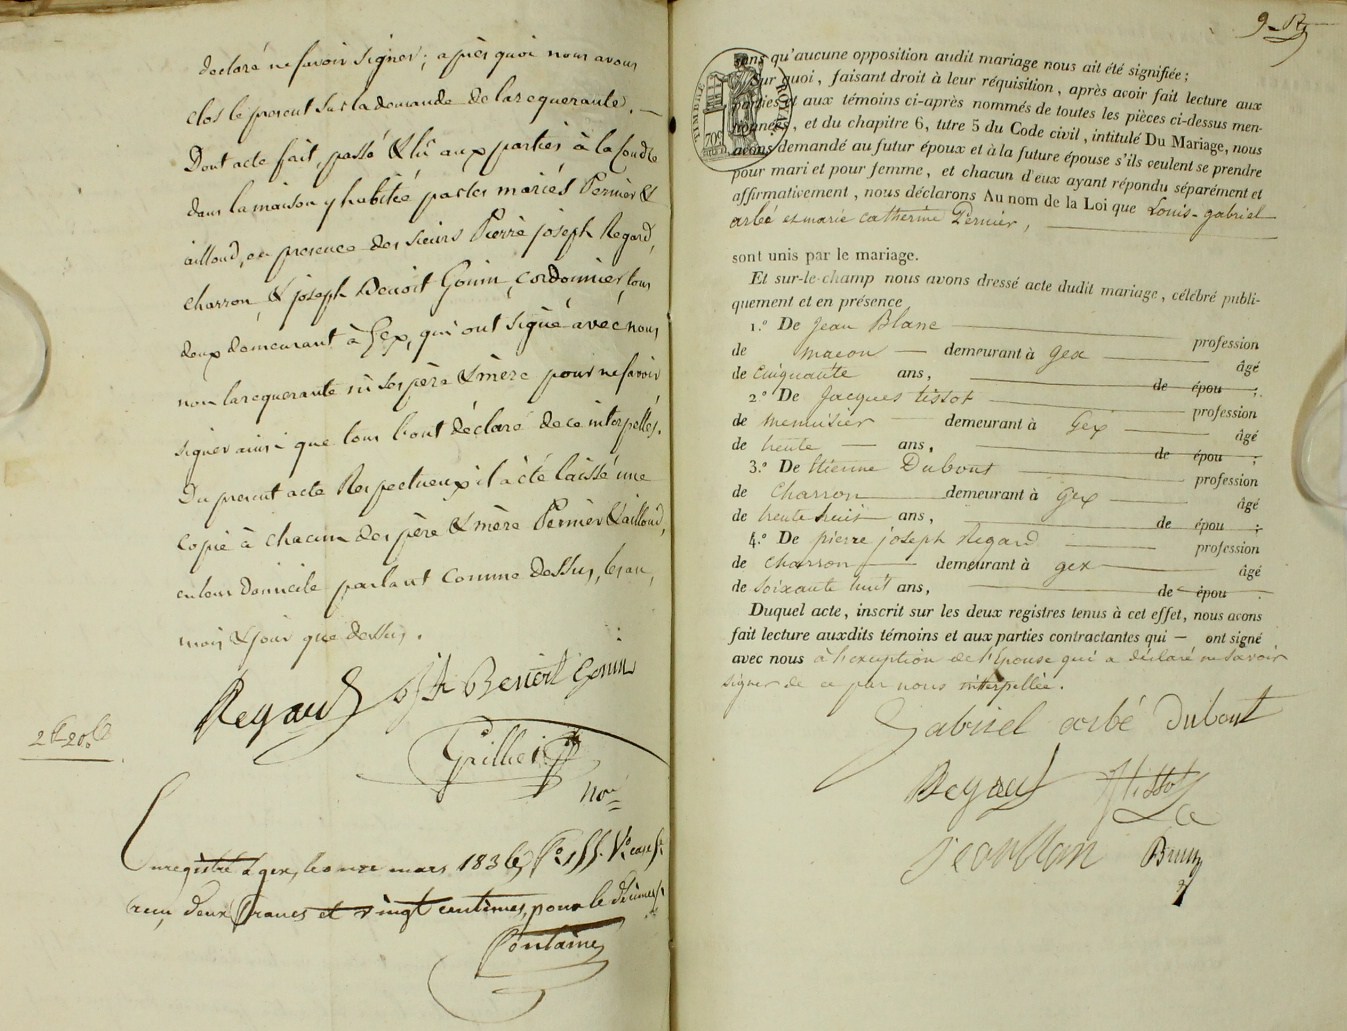 declaré ne savoir signer; après quoi nous avons
clos le present sur la demande de la requerante.
Dont acte fait, passé & lû aux parties à la Coudre
dans la maison y habitée par les mariés Pernier &
ailloud, en presence des sieurs Pierre joseph Regard,
charron, & joseph Benoit Gonin, cordonnier, tous
deux demeurant à Gex, qui ont signé avec nous
non la requerante ni ses père & mère pour ne savoir
signer ainsi que tous l'ont déclaré de ce interpellés.
Du present acte Respectueux il a été laissé une
copie à chacun des père & mère Pernier & ailloud,
en leur domicile parlant comme dessus, les an,
mois & jour que dessus.
Regard Jh Benoit Gonin
2f 20c
Grillet
nore
Enregistré à gex, le onze mars 1836
recu deux francs et vingt centimes, pour le dixieme
Fontaine
9
TIMBRE ROYAL
709
sans qu'aucune opposition audit mariage nous ait été signifiée;
Sur quoi, faisant droit à leur réquisition, après avoir fait lecture aux
parties et aux témoins ci-après nommés de toutes les pièces ci-dessus men-
tionnées, et du chapitre 6, titre 5 du Code civil, intitulé Du Mariage, nous
avons demandé au futur époux et à la future épouse s'ils veulent se prendre
pour mari et pour femme, et chacun d'eux ayant répondu séparément et
affirmativement, nous déclarons Au nom de la Loi que Louis-gabriel
arbé et marie catherine Pernier,
sont unis par le mariage.
Et sur-le-champ nous avons dressé acte dudit mariage, célébré publi-
quement et en présence,
1.° De Jean Blanc profession
de macon demeurant à gex âgé
de cinquante ans, de épou ;
2.° De Jacques tissot profession
de menuisier demeurant à Gex âgé
de trente ans, de épou ;
3.° De Etienne Dubout profession
de Charron demeurant à gex âgé
de trente huit ans, de épou ;
4.° De pierre joseph Regard profession
de charron demeurant à gex âgé
de soixante huit ans, de épou .
Duquel acte, inscrit sur les deux registres tenus à cet effet, nous avons
fait lecture auxdits témoins et aux parties contractantes qui — ont signé
avec nous à l'exception de l'Epouse qui a déclaré ne savoir
signer de ce par nous interpellée.
Gabriel arbé Dubout
Regard Jtissot
Jean blan